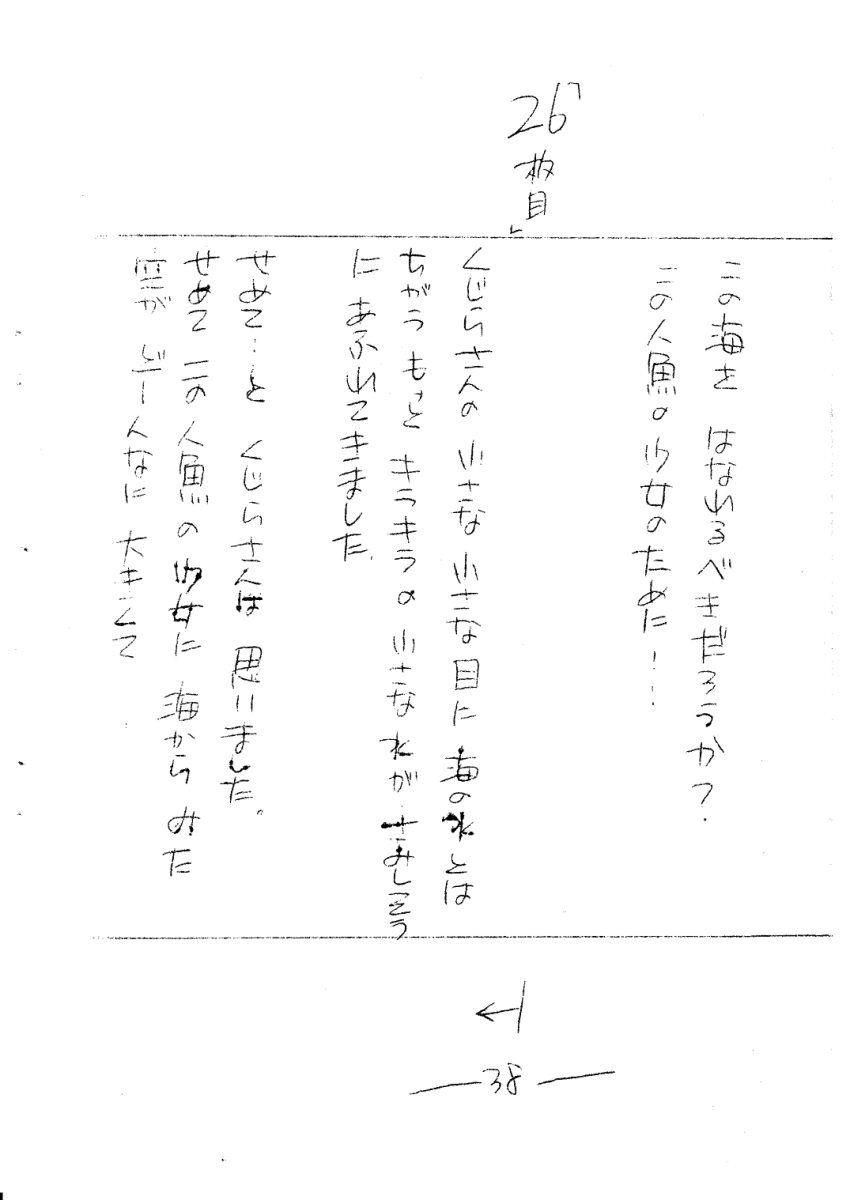 「26枚目」
この海を はなれるべきだろうか?
この人魚の少女のために!…
くじらさんの 小さな 小さな 目に 海の水とは
ちがう もっと キラキラの 小さな 水が さみしそう
に あふれてきました。
せめて…と くじらさんは 思いました。
せめて この人魚の 少女に 海から みた
空が どーんなに 大きくて
←
38